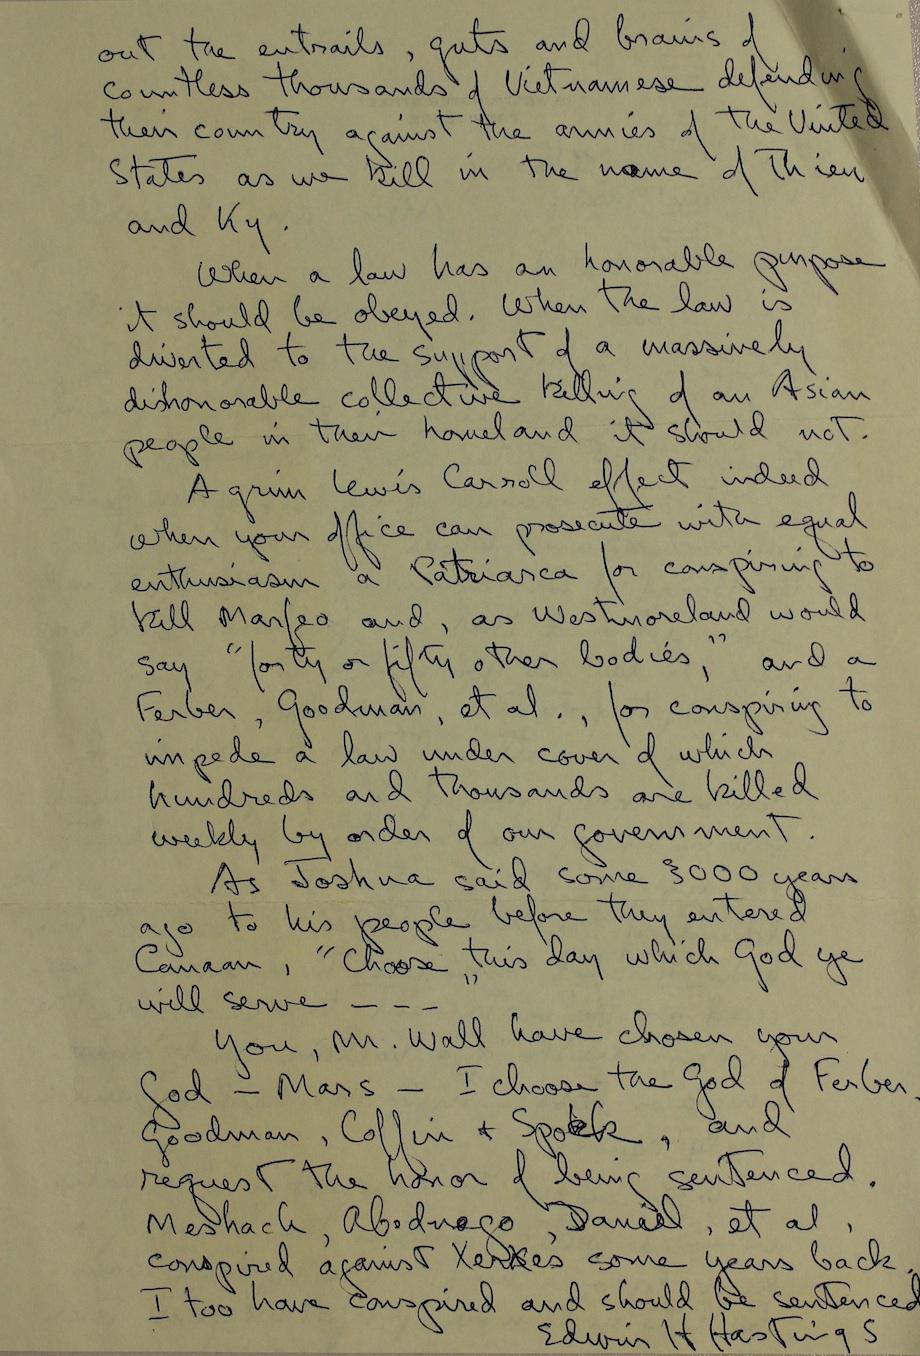 out the entrails, guts and brains of
countless thousands of Vietnamese defending
their country against the armies of the United
States as we kill in the name of Thieu
and Ky.
When a law has an honorable purpose
it should be obeyed. When the law is
diverted to the support of a massively
dishonorable collective killing of an Asian
people in their homeland it should not.
A grim Lewis Carroll effect indeed
when your office can prosecute with equal
enthusiasm a Patriarca for conspiring to
kill Marfeo and, as Westmoreland would
say "forty or fifty other bodies," and a
Ferber, Goodman, et al., for conspiring to
impede a law under cover of which
hundreds and thousands are killed
weekly by order of our government.
As Joshua said some 3000 years
ago to his people before they entered
Canaan, "Choose this day which God ye
will serve ---"
You, Mr. Wall have chosen your
God - Mars - I choose the God of Ferber,
Goodman, Coffin + Spock, and
request the honor of being sentenced.
Meshach, Abednego, Daniel, et al,
conspired against Xerxes some years back.
I too have conspired and should be sentenced
Edwin H Hastings